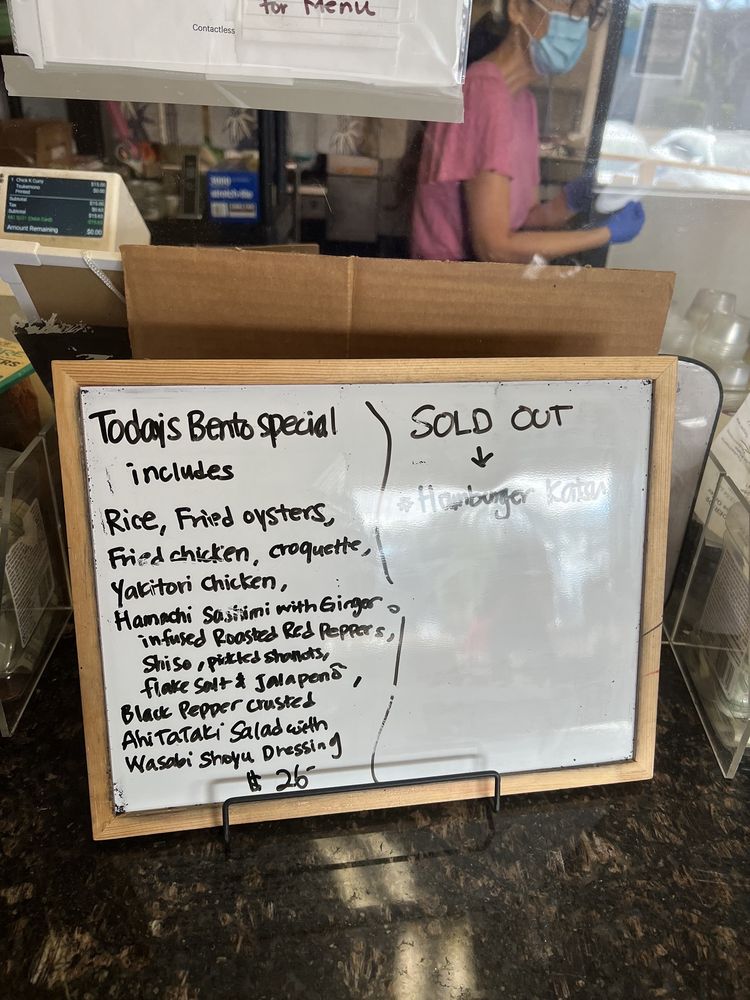 for Menu
Contactless
1 Chick K Curry $15.00
Tsukemono $0.00
Printed
Subtotal
Tax
Subtotal
Amount Remaining $0.00
Today's Bento special
includes
Rice, Fried oysters,
Fried chicken, croquette,
Yakitori Chicken,
Hamachi Sashimi with Ginger
infused Roasted Red Peppers,
Shiso, pickled shallots,
flake salt & Jalapeño,
Black Pepper crusted
Ahi TaTaki Salad with
Wasabi Shoyu Dressing
$ 26-
SOLD OUT
↓
* Hamburger Katsu